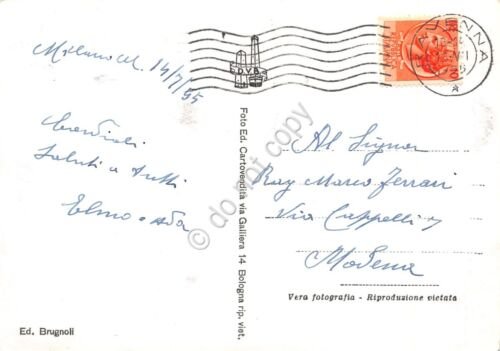 Milano M. 14/7/55
Cordiali
saluti a tutti
Elmo e Ada
Ed. Brugnoli
D.V.B.
RAVENNA
Foto Ed. Cartovendita via Galliera 14 Bologna rip. viet.
Al Signor
Rag Marco Ferrari
Via Cappelli
Modena
Vera fotografia - Riproduzione vietata
do not copy